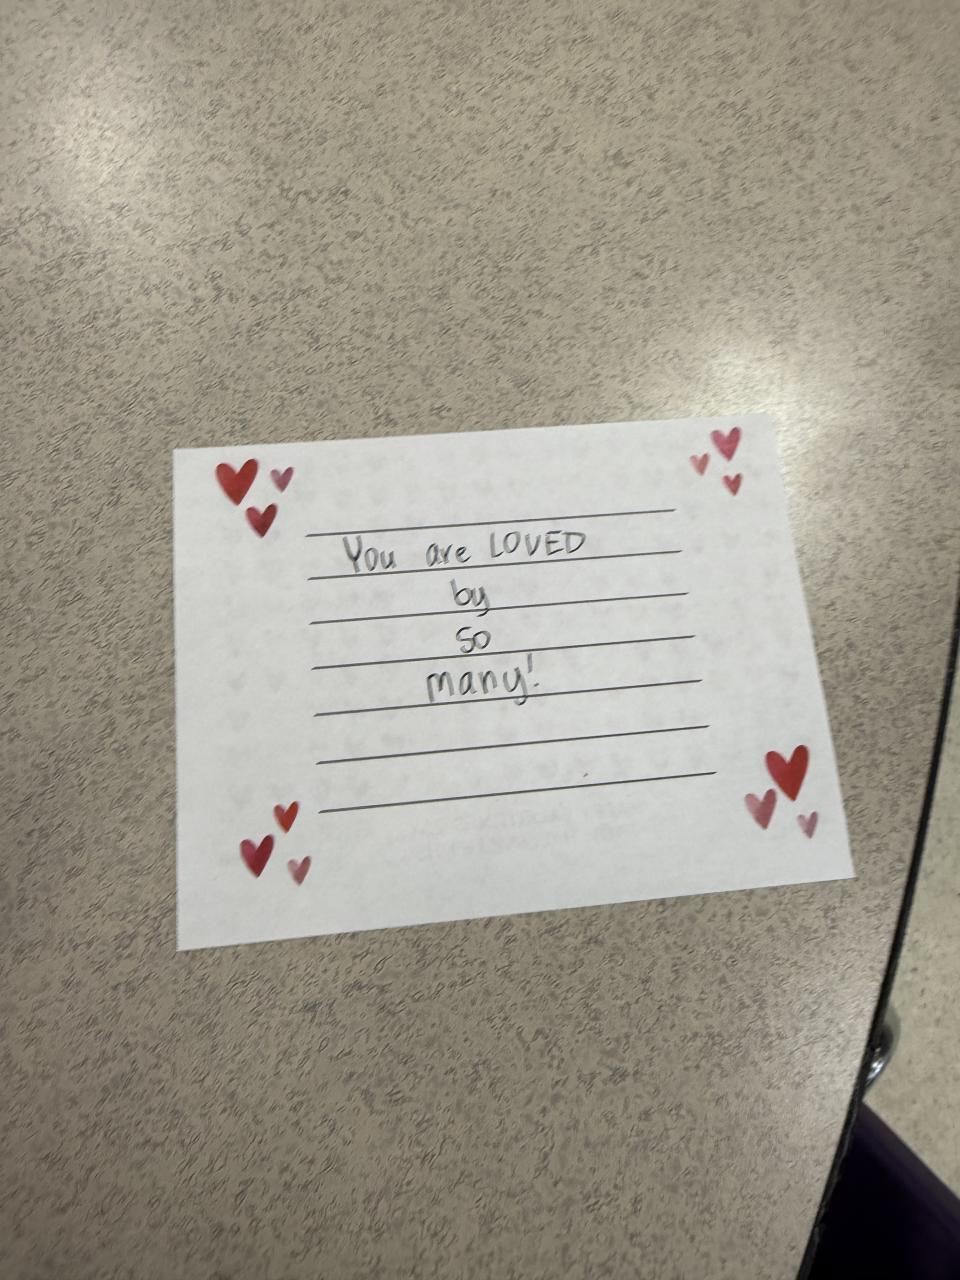 You are LOVED
by
so
many!